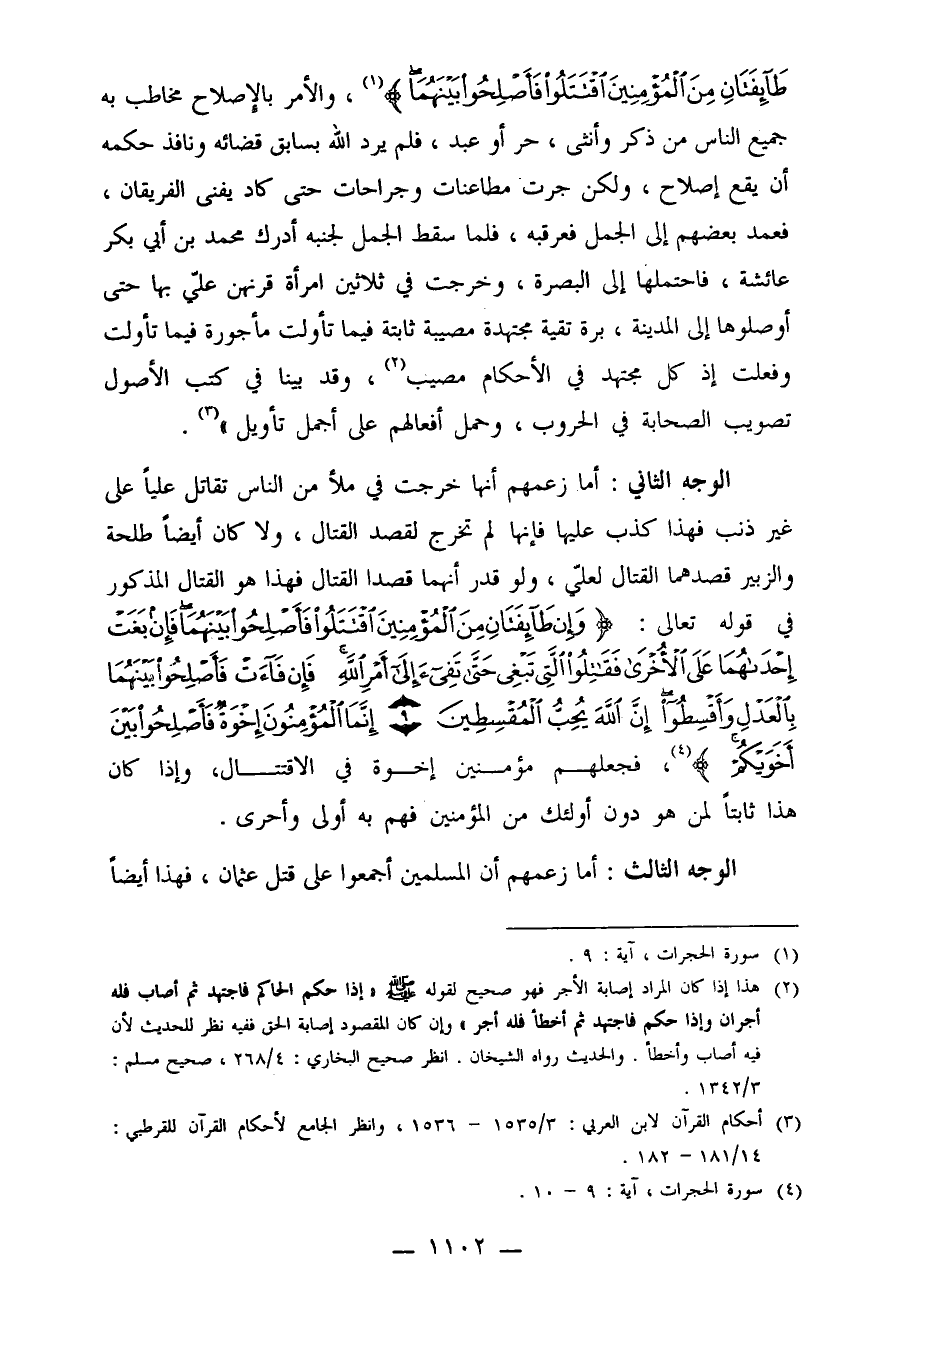 طَآئِفَتَانِ مِنَ ٱلْمُؤْمِنِينَ ٱقْتَتَلُوا۟ فَأَصْلِحُوا۟ بَيْنَهُمَا ۖ ﴾(١) ، والأمر بالإصلاح مخاطب به
جميع الناس من ذكر وأنثى ، حر أو عبد ، فلم يرد الله بسابق قضائه ونافذ حكمه
أن يقع إصلاح ، ولكن جرت مطاعنات وجراحات حتى كاد يفنى الفريقان ،
فعمد بعضهم إلى الجمل فعرقبه ، فلما سقط الجمل لجنبه أدرك محمد بن أبي بكر
عائشة ، فاحتملها إلى البصرة ، وخرجت في ثلاثين امرأة قرنهن عليّ بها حتى
أوصلوها إلى المدينة ، برة تقية مجتهدة مصيبة ثابتة فيما تأولت مأجورة فيما تأولت
وفعلت إذ كل مجتهد في الأحكام مصيب(٢) ، وقد بينا في كتب الأصول
تصويب الصحابة في الحروب ، وحمل أفعالهم على أجمل تأويل »(٣) .
الوجه الثاني : أما زعمهم أنها خرجت في ملأ من الناس تقاتل علياً على
غير ذنب فهذا كذب عليها فإنها لم تخرج لقصد القتال ، ولا كان أيضاً طلحة
والزبير قصدهما القتال لعليّ ، ولو قدر أنهما قصدا القتال فهذا هو القتال المذكور
في قوله تعالى : ﴿ وَإِن طَآئِفَتَانِ مِنَ ٱلْمُؤْمِنِينَ ٱقْتَتَلُوا۟ فَأَصْلِحُوا۟ بَيْنَهُمَا ۖ فَإِنۢ بَغَتْ
إِحْدَىٰهُمَا عَلَى ٱلْأُخْرَىٰ فَقَٰتِلُوا۟ ٱلَّتِى تَبْغِى حَتَّىٰ تَفِىٓءَ إِلَىٰٓ أَمْرِ ٱللَّهِ ۚ فَإِن فَآءَتْ فَأَصْلِحُوا۟ بَيْنَهُمَا
بِٱلْعَدْلِ وَأَقْسِطُوٓا۟ ۖ إِنَّ ٱللَّهَ يُحِبُّ ٱلْمُقْسِطِينَ ۝٩ إِنَّمَا ٱلْمُؤْمِنُونَ إِخْوَةٌ فَأَصْلِحُوا۟ بَيْنَ
أَخَوَيْكُمْ ۚ ﴾(٤)، فجعلهــم مؤمــنين إخــوة في الاقتتــال، وإذا كان
هذا ثابتاً لمن هو دون أولئك من المؤمنين فهم به أولى وأحرى .
الوجه الثالث : أما زعمهم أن المسلمين أجمعوا على قتل عثمان ، فهذا أيضاً
(١) سورة الحجرات ، آية : ٩ .
(٢) هذا إذا كان المراد إصابة الأجر فهو صحيح لقوله ﷺ « إذا حكم الحاكم فاجتهد ثم أصاب فله
أجران وإذا حكم فاجتهد ثم أخطأ فله أجر » وإن كان المقصود إصابة الحق ففيه نظر للحديث لأن
فيه أصاب وأخطأ . والحديث رواه الشيخان . انظر صحيح البخاري : ٢٦٨/٤ ، صحيح مسلم :
١٣٤٢/٣ .
(٣) أحكام القرآن لابن العربي : ١٥٣٥/٣ – ١٥٣٦ ، وانظر الجامع لأحكام القرآن للقرطبي :
١٨١/١٤ – ١٨٢ .
(٤) سورة الحجرات ، آية : ٩ – ١٠ .
— ١١٠٢ —